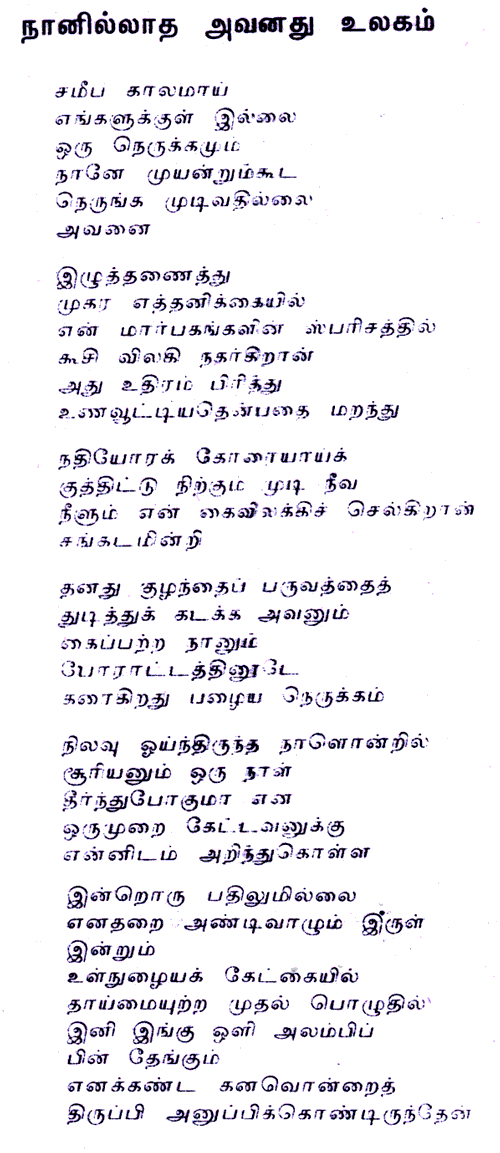 நானில்லாத அவனது உலகம்
சமீப காலமாய்
எங்களுக்குள் இல்லை
ஒரு நெருக்கமும்
நானே முயன்றும்கூட
நெருங்க முடிவதில்லை
அவனை
இழுத்தணைத்து
முகர எத்தனிக்கையில்
என் மார்பகங்களின் ஸ்பரிசத்தில்
கூசி விலகி நகர்கிறான்
அது உதிரம் பிரித்து
உணவூட்டியதென்பதை மறந்து
நதியோரக் கோரையாய்க்
குத்திட்டு நிற்கும் முடி நீவ
நீளும் என் கைவிலக்கிச் செல்கிறான்
சங்கடமின்றி
தனது குழந்தைப் பருவத்தைத்
துடித்துக் கடக்க அவனும்
கைப்பற்ற நானும்
போராட்டத்தினூடே
கரைகிறது பழைய நெருக்கம்
நிலவு ஓய்ந்திருந்த நாளொன்றில்
சூரியனும் ஒரு நாள்
தீர்ந்துபோகுமா என
ஒருமுறை கேட்டவனுக்கு
என்னிடம் அறிந்துகொள்ள
இன்றொரு பதிலுமில்லை
எனதறை அண்டிவாழும் இருள்
இன்றும்
உள்நுழையக் கேட்கையில்
தாய்மையுற்ற முதல் பொழுதில்
இனி இங்கு ஒளி அலம்பிப்
பின் தேங்கும்
எனக்கண்ட கனவொன்றைத்
திருப்பி அனுப்பிக்கொண்டிருந்தேன்